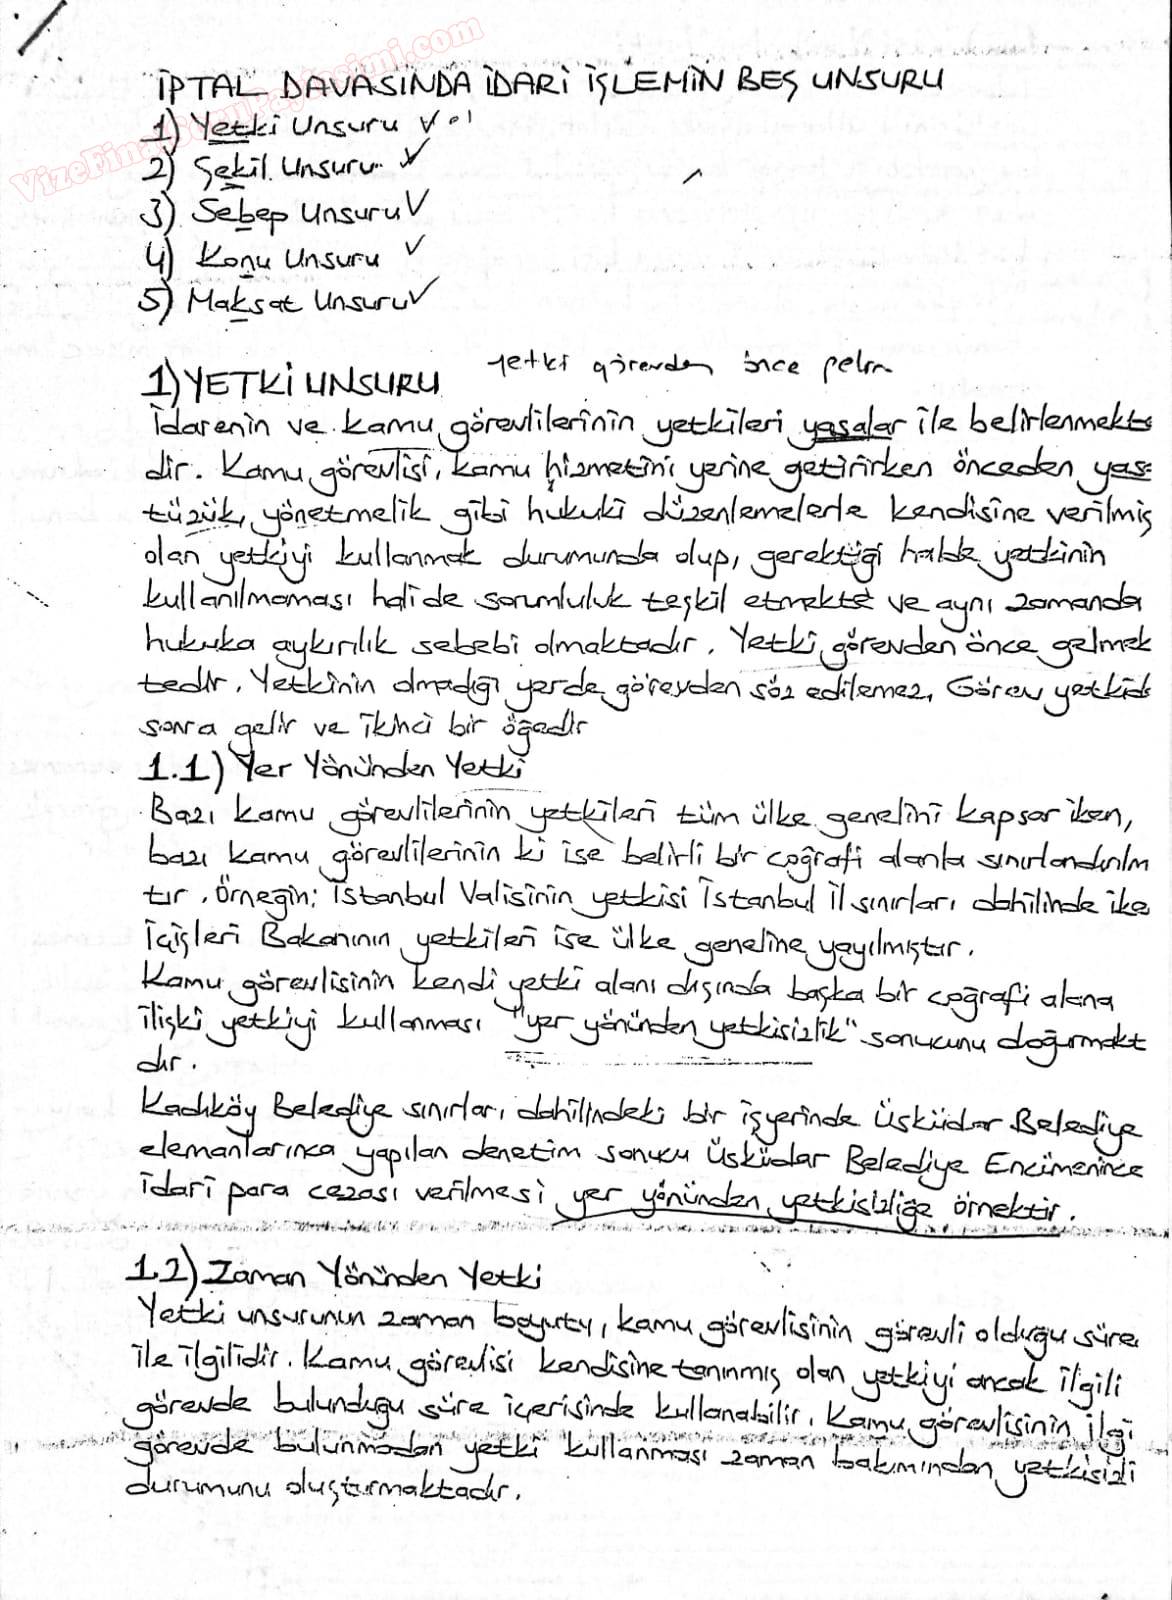 VizeFinalSoruPaylasimi.com
İPTAL DAVASINDA İDARİ İŞLEMİN BEŞ UNSURU
1) Yetki Unsuru
2) Şekil Unsuru
3) Sebep Unsuru
4) Konu Unsuru
5) Maksat Unsuru
1) YETKİ UNSURU yetki görevden önce gelir
İdarenin ve kamu görevlilerinin yetkileri yasalar ile belirlenmekte
dir. Kamu görevlisi, kamu hizmetini yerine getirirken önceden yas
tüzük, yönetmelik gibi hukuki düzenlemelerle kendisine verilmiş
olan yetkiyi kullanmak durumunda olup, gerektiği halde yetkinin
kullanılmaması hali de sorumluluk teşkil etmekte ve aynı zamanda
hukuka aykırılık sebebi olmaktadır. Yetki, görevden önce gelmek
tedir. Yetkinin olmadığı yerde görevden söz edilemez, Görev yetkid
sonra gelir ve ikinci bir öğedir
1.1) Yer Yönünden Yetki
Bazı kamu görevlilerinin yetkileri tüm ülke genelini kapsar iken,
bazı kamu görevlilerinin ki ise belirli bir coğrafi alanla sınırlandırılm
tır. Örneğin; İstanbul Valisinin yetkisi İstanbul il sınırları dahilinde ike
İçişleri Bakanının yetkileri ise ülke geneline yayılmıştır.
Kamu görevlisinin kendi yetki alanı dışında başka bir coğrafi alana
ilişki yetkiyi kullanması "yer yönünden yetkisizlik" sonucunu doğurmakt
dır.
Kadıköy Belediye sınırları dahilindeki bir işyerinde Üsküdar Belediye
elemanlarınca yapılan denetim sonucu Üsküdar Belediye Encümenince
idari para cezası verilmesi yer yönünden yetkisizliğe örnektir.
1.2) Zaman Yönünden Yetki
Yetki unsurunun zaman boyutu, kamu görevlisinin görevli olduğu süre
ile ilgilidir. Kamu görevlisi kendisine tanınmış olan yetkiyi ancak ilgili
görevde bulunduğu süre içerisinde kullanabilir. Kamu görevlisinin ilgi
görevde bulunmadan yetki kullanması zaman bakımından yetkisizli
durumunu oluşturmaktadır.